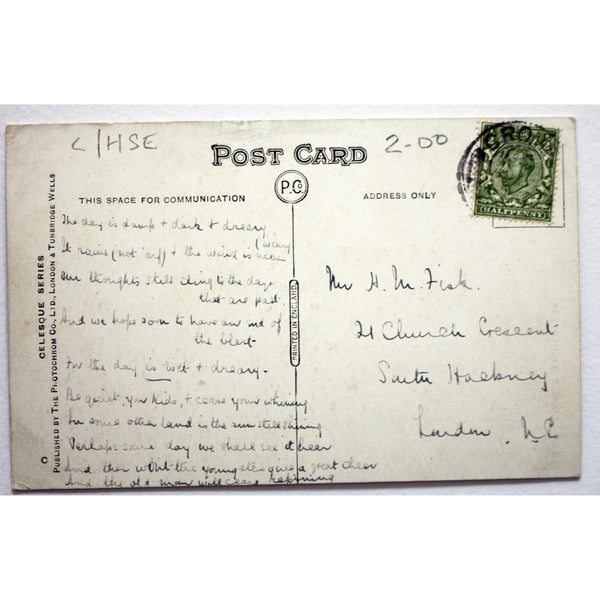 C/HSE
2-00
CRO
POST CARD
P.Co.
THIS SPACE FOR COMMUNICATION
ADDRESS ONLY
HALFPENNY
CELESQUE SERIES
PUBLISHED BY THE PHOTOCHROM CO., LTD., LONDON & TUNBRIDGE WELLS
PRINTED IN ENGLAND
The day is damp + dark + dreary
It rains (not 'arf) + the wind is never
(weary
Our thoughts still cling to the days
that are past
And we hope soon to have an end of
the blast
For the day is wet + dreary.
Be quiet, you kids, + cease your whining
In some other land is the sun still shining
Perhaps some day we shall see it here
And then will the youngsters give a great cheer
And the old man will cease repining
Mr H. M. Fisk.
21 Church Crescent
South Hackney
London. NE